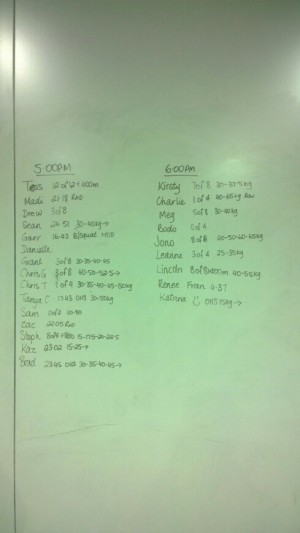 5:00PM
Tess 12 of 12 + 400m
Madi 21:18 Rx0
Drew 3 of 8
Sean 26:51 30-40kg→
Gaver 16:43
Danielle
Grant 3 of 8 30-35-40-45
Chris G 8 of 8 40-50-52.5→
Chris T 1 of 4 30-35-40-45-50kg
Tanya C 17:43 OHS 30-50kg
Sam
Zac 22:05
Steph 15-17.5-20-22.5
Kaz 23:02 15-25→
Brad 23:45 OHS 30-35-40-45→
6:00AM
Kirsty 7 of 8 30-37.5kg
Charlie 1 of 4 40-65kg
Meg 5 of 8 30-40kg
Bodo 0 of 4
Jono 8 of 8 40-50-60-65kg
Leanne 3 of 4 25-35kg
Lincoln 8 of 8 40-50kg
Renee Fran 4:37
Katrina OHS 15kg→